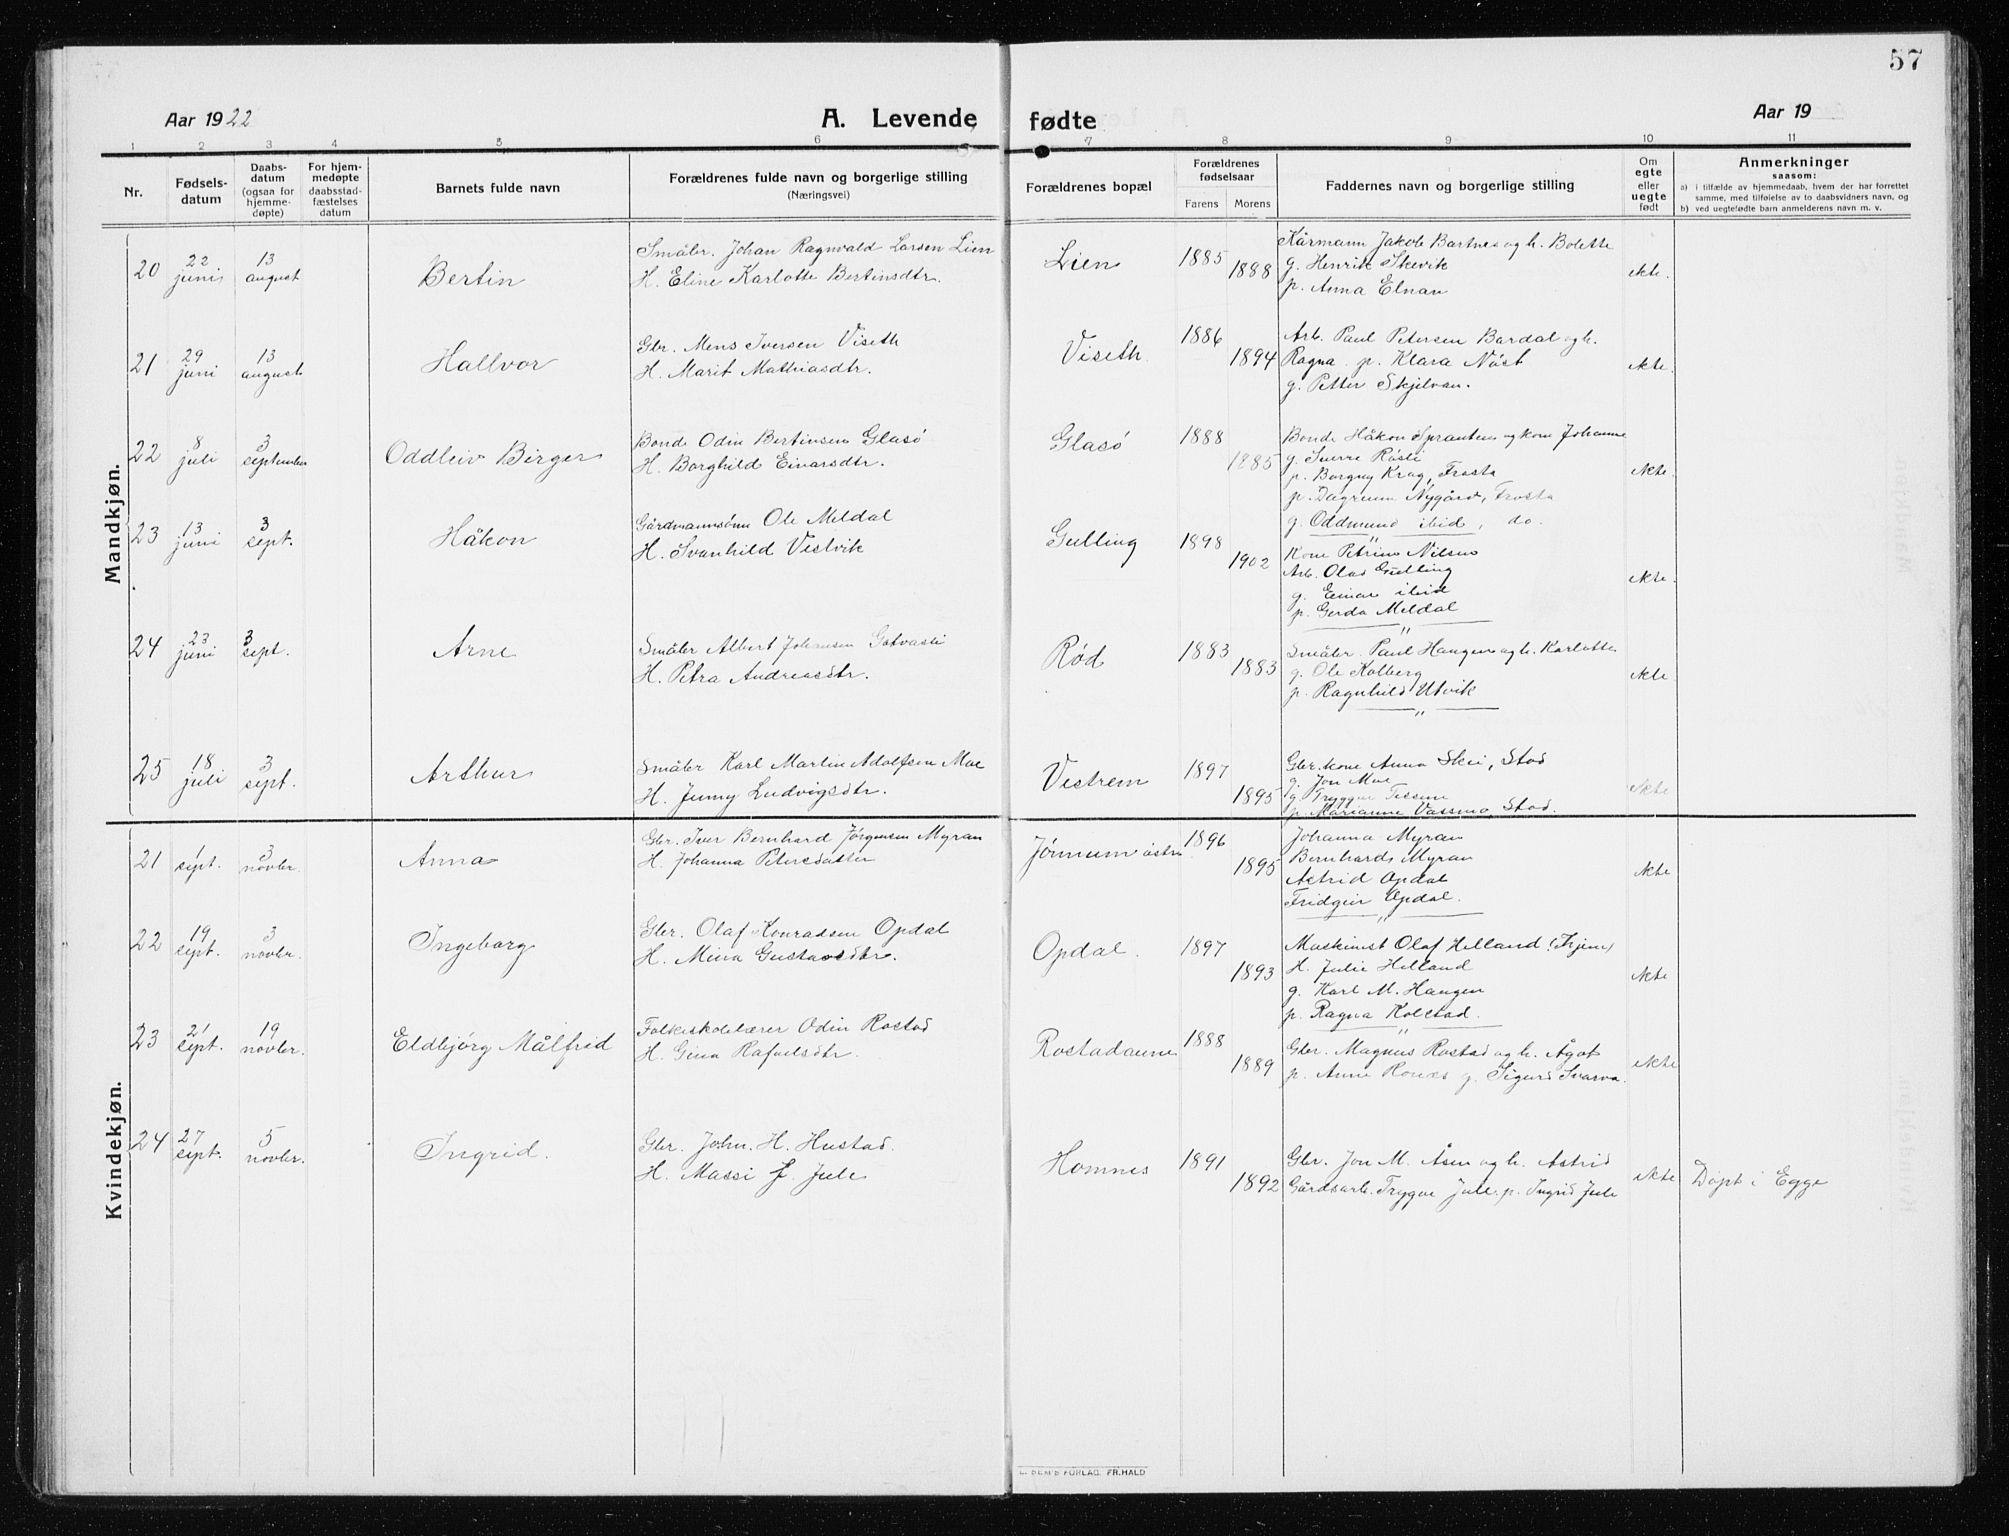 57
Aar 1922
A. Levende fødte
Aar 19
1 2 3 4 5 6 7 8 9 10 11
Nr.
Fødselsdatum
Daabsdatum (ogsaa for hjemmedøpte)
For hjemmedøpte daabsstadfæstelses datum
Barnets fulde navn
Forældrenes fulde navn og borgerlige stilling
(Næringsvei)
Forældrenes bopæl
Forældrenes fødselsaar
Farens Morens
Faddernes navn og borgerlige stilling
Om egte eller uegte født
Anmerkninger
saasom:
a) i tilfælde av hjemmedaab, hvem der har forrettet
samme, med tilføielse av to daabsvidners navn, og
b) ved uegtefødte barn anmelderens navn m. v.
Mandkjøn.
20 22 juni 13 august Bertin
Småbr. Johan Ragnvald Larsen Lien
H. Eline Karlotte Bertinsdtr.
Lien 1885 1888
Kårmann Jakob Bartnes og h. Bolette
g. Henrik Skevik
p. Anna Elnan
ekte.
21 29 juni 13 august Hallvor
Gbr. Mens Iversen Viseth
H. Marit Mathiasdtr.
Viseth 1886 1894
Arb. Paul Petersen Bardal og h.
Ragna p. Klara Nøst
g. Petter Skjelvan.
ekte.
22 8 juli 3 september Oddleiv Birger
Bonde Odin Bertinsen Glasø
H. Borghild Einarsdtr.
Glasø 1888 1885
Bonde Håkon Sprauten og kone Johanne
g. Sverre Røsli
p. Borgny Krog, Frosta
p. Dagrunn Nygård, Frosta
g. Oddmund ibid, do.
ekte
23 13 juni 3 sept. Håkon
Gårdmannssønn Ole Meldal
H. Svanhild Vestvik
Gulling 1898 1902
Kone Petrine Nilsen
Arb. Olav Gulling
g. Einar ibid
p. Gerda Meldal
ekte
24 23 juni 3 sept. Arne
Småbr Albert Johansen Gotvasli
H. Petra Andreasdtr.
Rød 1883 1883
Småbr. Paul Haugen og h. Karlotte
g. Ole Kolberg
p. Ragnhild Utvik
ekte
25 18 juli 3 sept. Arthur
Småbr Karl Martin Adolfsen Moe
H. Jenny Ludvigsdtr.
Vestrem 1897 1895
Gbr. kone Anna Skei, Stod
g. Jon Moe
g. Tryggve Tessem
p. Marianne Vassmo, Stod.
ekte
Kvindekjøn.
21 1 sept. 3 novbr. Anna
Gbr. Iver Bernhard Jørgensen Myran
H. Johanna Petersdatter
Jørnnum østre 1896 1895
Johanna Myran
Bernhard Myran
Astrid Opdal
Fridgeir Opdal.
ekte
22 19 sept. 3 novbr. Ingeborg
Gbr. Olaf Konradsen Opdal
H. Mina Gustavsdtr.
Opdal. 1897 1893
Maskinist Olaf Helland
H. Julie Helland
g. Karl M. Haugen
p. Ragna Kolstad.
ekte
23 21 sept. 19 novbr. Eldbjørg Målfrid
Folkeskolelærer Odin Rostad
H. Gina Rafaelsdtr.
Rostadaune 1888 1889
Gbr. Magnus Rostad og h. Ågot
p. Anne g. Sigurd Svarva.
ekte
24 27 sept. 5 novbr. Ingrid.
Gbr. John. H. Hustad.
H. Massi J. Jule
Homnes 1891 1892
Gbr. Jon M. Åsen og h. Astrid
Gårdsarb. Trygve Jule. p. Ingrid Jule
ekte
Døpt i Egge
FORLAG. FR. HALD